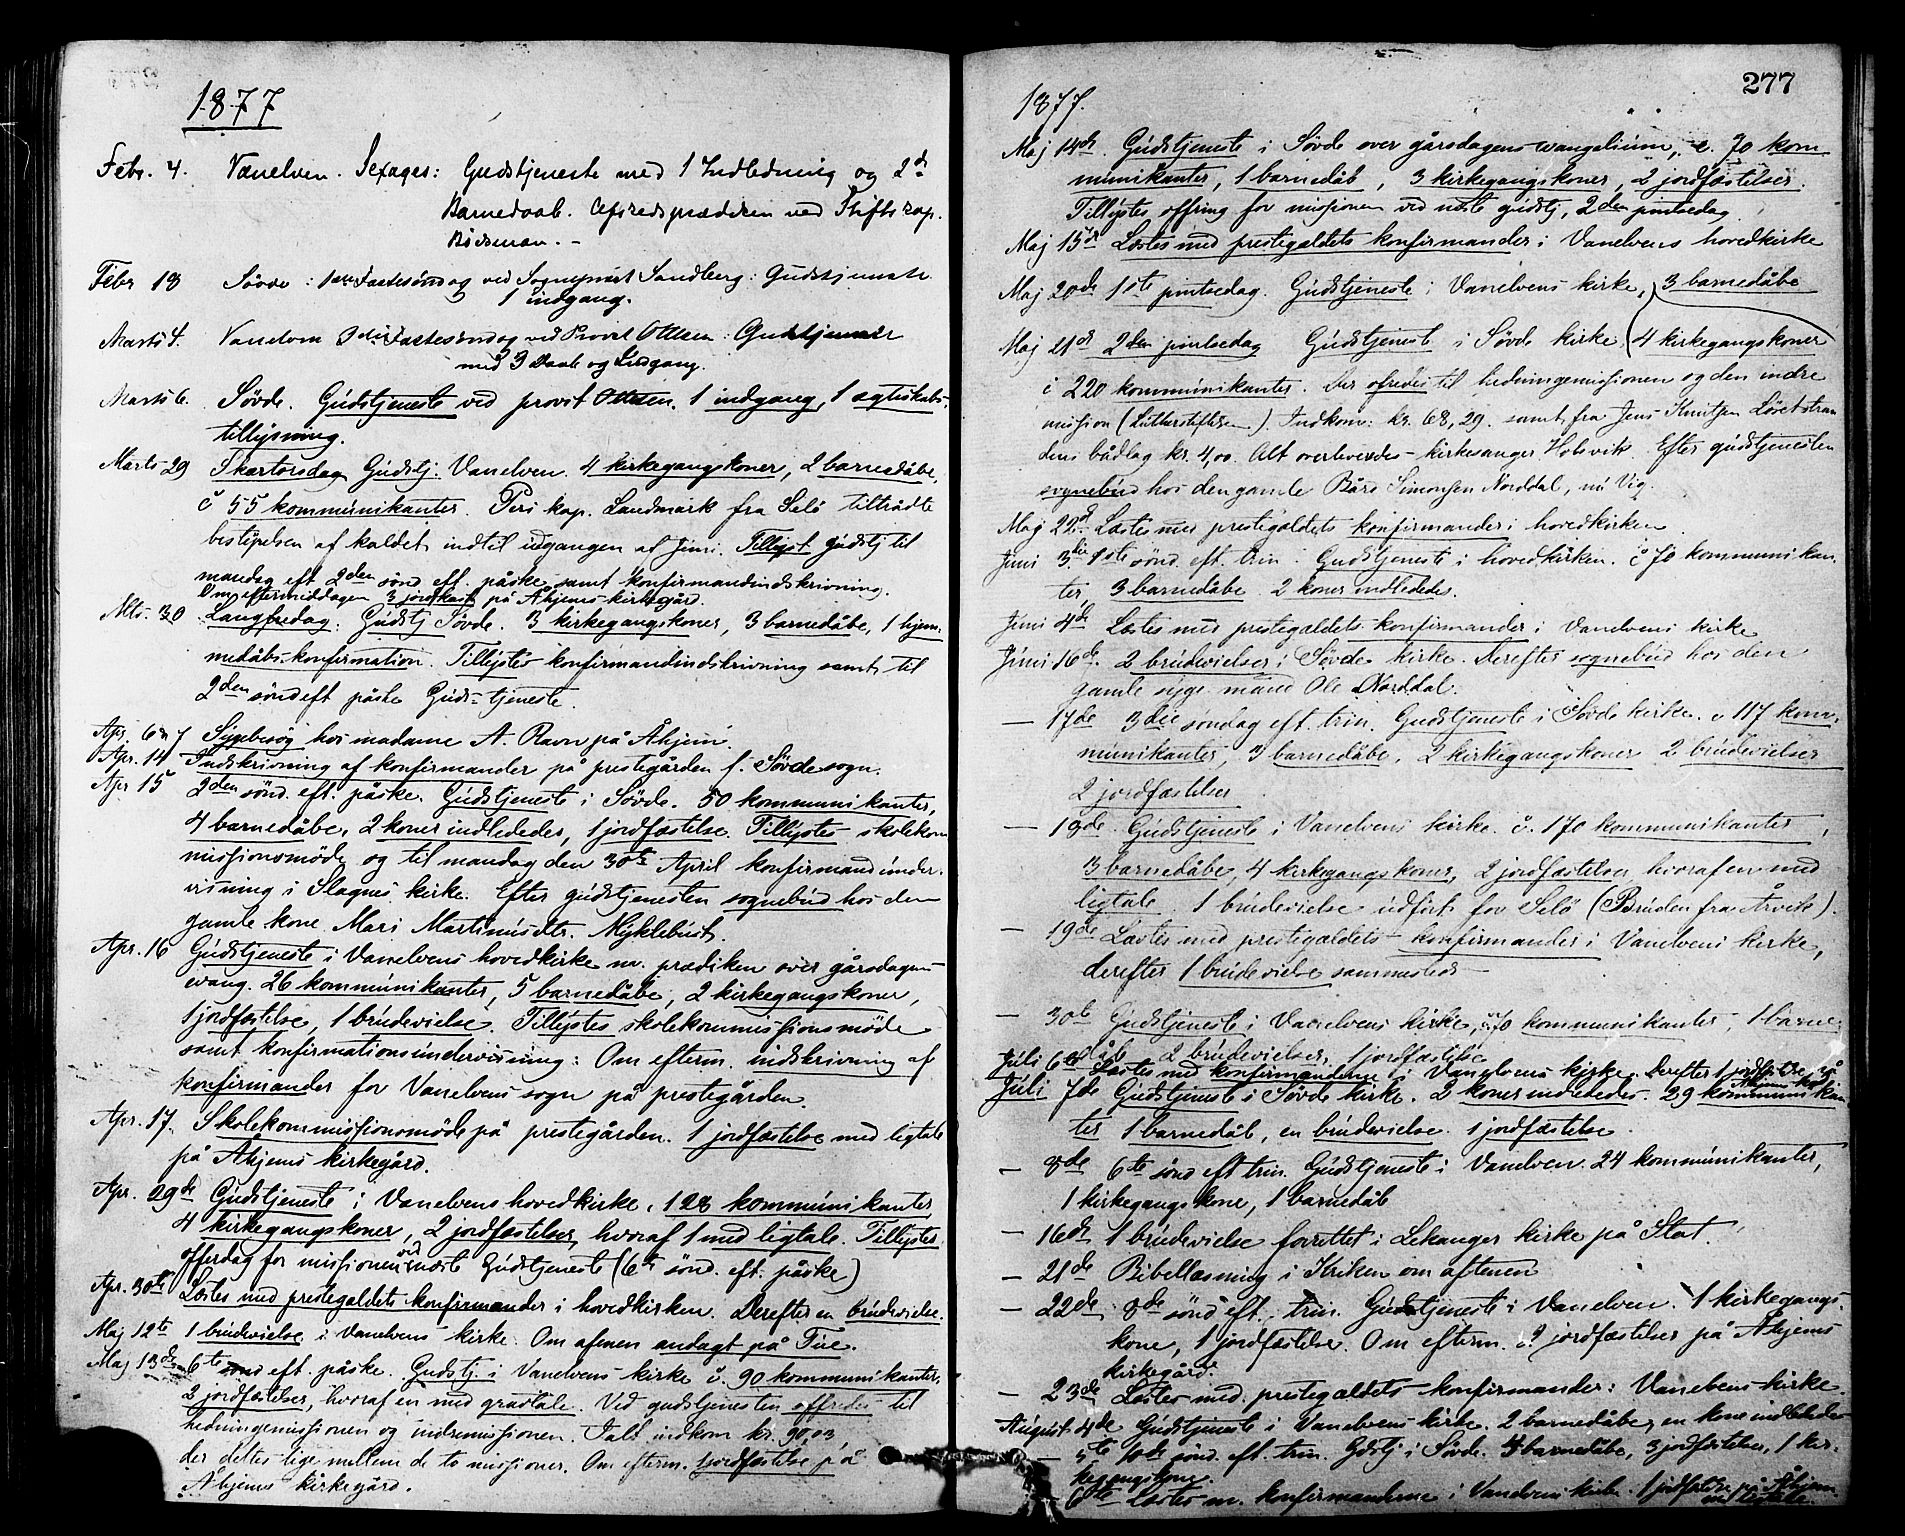 1877
Febr. 4. Vanelven. Sexages: Gudstjeneste med 1 Indledning og 2de
Barnedaab. Afskedsprædiken ved Stiftskap.
Febr 18 Søvde: 1ste Fastesøndag ved Sogneprest Sandberg: Gudstjeneste
1 indgang.
Marts 4. Vanelven 3die Fastesøndag ved Provst Ottesen: Gudstjeneste
med 3 Daab og Indgang.
Marts 6. Søvde. Gudstjeneste ved provst Ottesen. 1 indgang, 1 ægteskabs-
tillysning.
Marts 29 Skærtorsdag Gudstj. Vanelven. 4 kirkegangskoner, 2 barnedåbe,
c 55 kommunikanter. Pers. kap. Landmark fra Selø tiltrådte
bestyrelsen af kaldet indtil udgangen af Juni. Tillyst gudstj til
mandag eft 2den sønd eft. påske samt konfirmandindskrivning.
Om eftermiddagen 3 jordkast på Åhjems kirkegård.
Mts. 30 Langfredag: Gudstj Søvde. 3 kirkegangskoner, 3 barnedåbe, 1 hjem-
medåbs-konfirmation. Tillystes konfirmandindskrivning samt til
2den sønd eft påske Guds-tjeneste.
Apr. 6 & 7 Sygebesøg hos madame A. Ravn på Åhjem.
Apr. 14 Indskrivning af konfirmander på prestegården f. Søvde sogn.
Apr 15 2den sønd. eft. påske. Gudstjeneste i Søvde. 50 kommunikanter,
4 barnedåbe, 2 koner indlededes, 1 jordfæstelse. Tillystes skolekom
missionsmøde og til mandag den 30te April konfirmandunder-
visning i Slagnes kirke. Efter gudstjenesten sognebud hos den
gamle kone Mari Martinusdtr. Myklebust.
Apr. 16 Gudstjeneste i Vanelvens hovedkirke m. prædiken over gårsdagens
evang. 26 kommunikanter, 5 barnedåbe, 2 kirkegangskoner,
1 jordfæstelse, 1 brudevielse. Tillystes skolekommissionsmøde
samt konfirmationsundervisning: Om efterm. indskrivning af
konfirmander for Vanelvens sogn på prestegården.
Apr. 17. Skolekommissionsmøde på prestegården. 1 jordfæstelse med ligtale
på Åhjems kirkegård.
Apr. 29de Gudstjeneste i Vanelvens hovedkirke, 128 kommunikanter,
4 kirkegangskoner, 2 jordfæstelser, hvoraf 1 med ligtale. Tillystes
offerdag for missionen ved næste Gudstjeneste (6te sønd. eft. påske)
Apr. 30te Læstes med prestegjældets konfirmander i hovedkirken. Derefter en brudevielse.
Maj 12te 1 brudevielse i Vanelvens kirke. Om aftenen andagt på Tue.
Maj 13de 6te sønd eft. påske. Gudstj. i Vanelvens kirke c. 90 kommunikanter,
2 jordfæstelser, hvoraf en med gravtale. Ved gudstjenesten offredes til
hedningemissionen og indremissionen. Ialt indkom kr. 90,03,
der deltes lige mellem de to missioner. Om efterm. 1 jordfæstelse på
Åhjems kirkegård.
277
1877.
Maj 14de. Gudstjeneste i Søvde over gårsdagens evangelium, c. 70 kom
munikanter, 1 barnedåb, 3 kirkegangskoner, 2 jordfæstelser.
Tillystes offring for missionen ved næste gudstj, 2den pintsedag.
Maj 15de Læstes med prestegjældets konfirmander i Vanelvens hovedkirke
Maj 20de 1ste pintsedag. Gudstjeneste i Vanelvens kirke, 3 barnedåbe
Maj 21de 2den pintsedag Gudstjeneste i Søvde kirke (4 kirkegangskoner
c 220 kommunikanter. Der ofredes til hedningemissionen og den indre
mission (Lutherstiftelsen). Indkom: kr. 68,29. samt fra Jens Knutsen Løsetstran
dens bådlag kr. 4,00. Alt overleveredes kirkesanger Holsvik. Efter gudstjenesten
sognebud hos den gamle Bård Simonsen Norddal, nu Vig.
Maj 22de Læstes med prestegjældets konfirmander i hovedkirken
Juni 3die 1ste sønd. eft. trin. Gudstjeneste i hovedkirken. c 70 kommunikan-
ter, 3 barnedåbe. 2 koner indlededes.
Juni 4de Læstes med prestegjældets konfirmander i Vanelvens kirke
Juni 16de. 2 brudevielser i Søvde kirke. Derefter sognebud hos den
gamle syge mand Ole Norddal.
— 17de 3die søndag eft. trin. Gudstjeneste i Søvde kirke. c 117 kom-
munikanter, 3 barnedåbe, 2 kirkegangskoner 2 brudevielser
2 jordfæstelser
— 19de. Gudstjeneste i Vanelvens kirke. c. 170 kommunikanter,
3 barnedåbe, 4 kirkegangskoner, 2 jordfæstelser, hvoraf en med
ligtale. 1 brudevielse udført for Selø (Bruden fra Årvik).
— 19de Læstes med prestegjældets konfirmander i Vanelvens kirke,
derefter 1 brudevielse sammesteds
— 30te Gudstjeneste i Vanelvens kirke, c 70 kommunikanter, 1 barne-
dåb 2 brudevielser, 1 jordfæstelse
Juli 6te Læstes med konfirmanderne i Vanelvens kirke. Derefter 1 jordfæstelse på
Åhjems kg.
Juli 7de Gudstjeneste i Søvde kirke. 2 koner indlededes. 29 kommunikan
ter 1 barnedåb, en brudevielse. 1 jordfæstelse.
— 8de 6te sønd eft trin. Gudstjeneste i Vanelven. 24 kommunikanter,
1 kirkegangskone, 1 barnedåb
— 16de 1 brudevielse forrettet i Lekanger kirke på Stat.
— 21de Bibellæsning i Kriken om aftenen
— 22de 8de sønd eft. trin. Gudstjeneste i Vanelven. 1 kirkegangs-
kone, 1 jordfæstelse. Om efterm. 2 jordfæstelser på Åhjems
kirkegård.
— 23de Læstes med prestegjældets konfirmander: Vanelvens kirke.
August 4de Gudstjeneste i Vanelvens kirke. 2 barnedåbe, en kone indlededes
— 5te 10de sønd. eft. trin. Gdstj i Søvde. 4 barnedåbe, 3 jordfæstelser, 1 kir-
kegangskone.
6te Læstes m. konfirmanderne i Vanelvens kirke. 1 jordfæstelse på Åhjem
med ligtale.